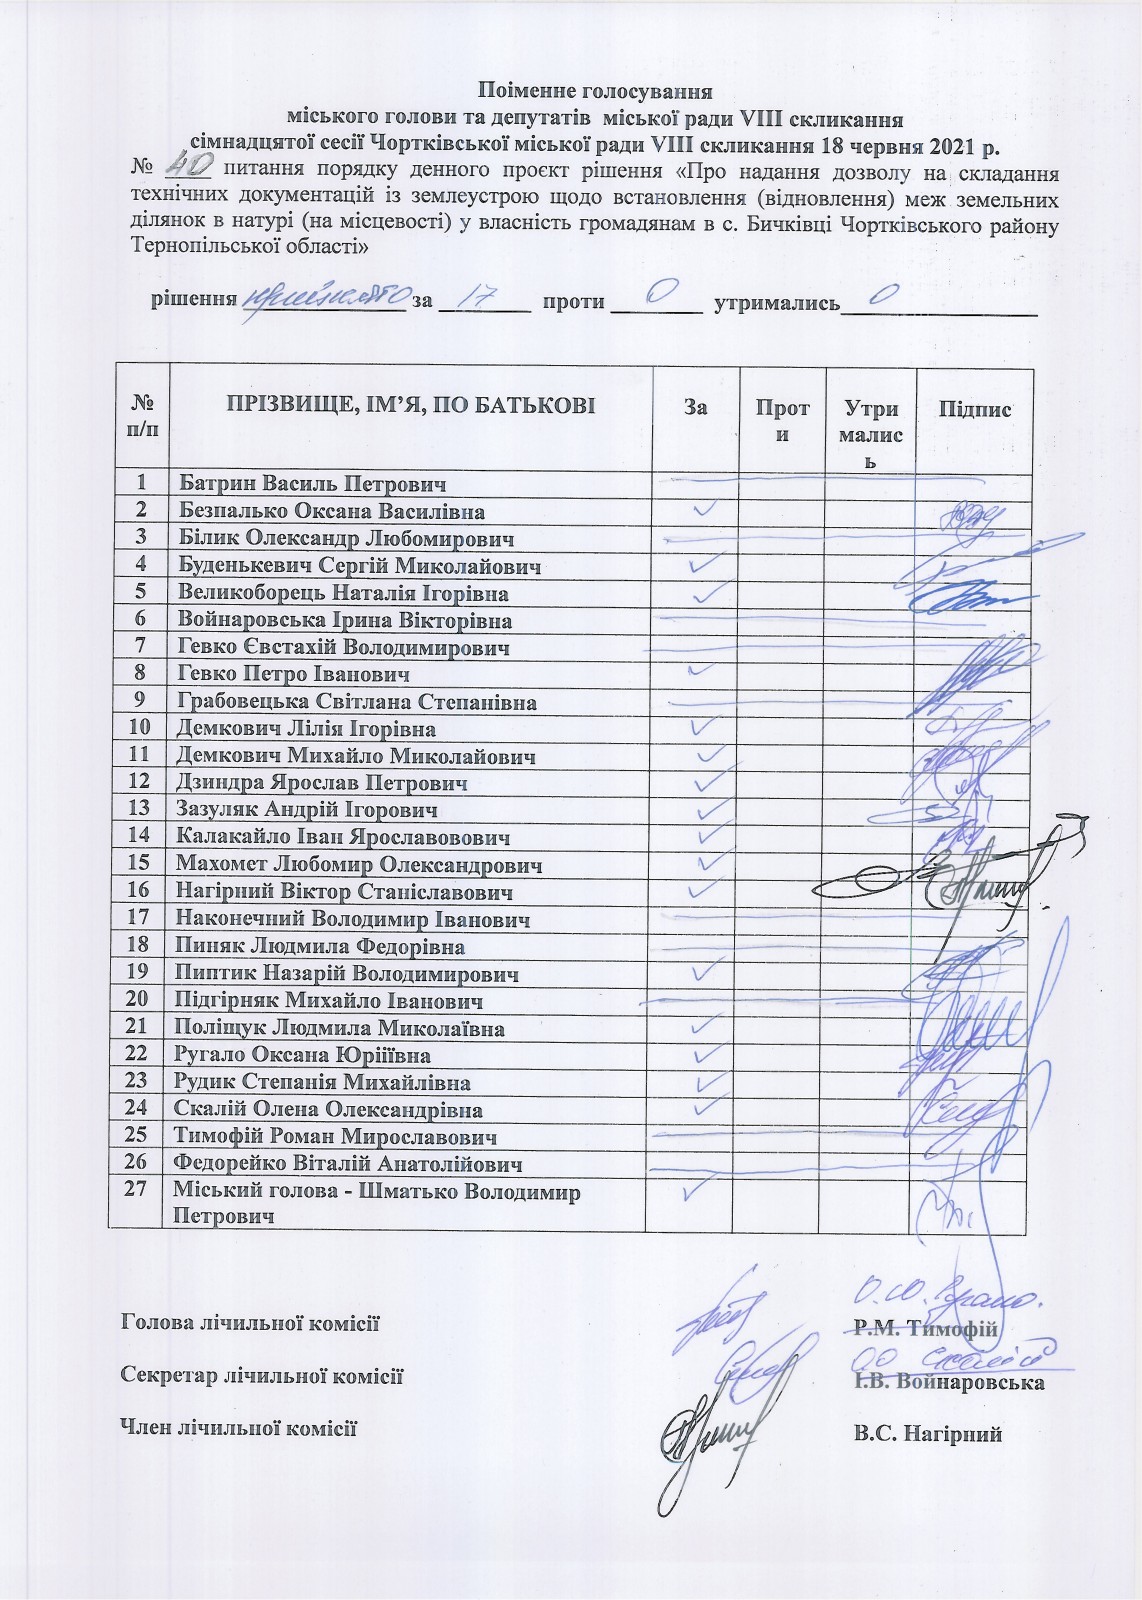 Поіменне голосування
міського голови та депутатів міської ради VIII скликання
сімнадцятої сесії Чортківської міської ради VIII скликання 18 червня 2021 р.
№ 40 питання порядку денного проєкт рішення «Про надання дозволу на складання
технічних документацій із землеустрою щодо встановлення (відновлення) меж земельних
ділянок в натурі (на місцевості) у власність громадянам в с. Бичківці Чортківського району
Тернопільської області»
рішення прийнято за 17 проти 0 утримались 0
№ п/п ПРІЗВИЩЕ, ІМ’Я, ПО БАТЬКОВІ За Проти Утрималися Підпис
1 Батрин Василь Петрович
2 Безпалько Оксана Василівна ✓
3 Білик Олександр Любомирович
4 Буденькевич Сергій Миколайович ✓
5 Великоборець Наталія Ігорівна ✓
6 Войнаровська Ірина Вікторівна
7 Гевко Євстахій Володимирович
8 Гевко Петро Іванович ✓
9 Грабовецька Світлана Степанівна
10 Демкович Лілія Ігорівна ✓
11 Демкович Михайло Миколайович ✓
12 Дзиндра Ярослав Петрович ✓
13 Зазуляк Андрій Ігорович ✓
14 Калакайло Іван Ярославовович ✓
15 Махомет Любомир Олександрович ✓
16 Нагірний Віктор Станіславович ✓
17 Наконечний Володимир Іванович
18 Пиняк Людмила Федорівна
19 Пиптик Назарій Володимирович ✓
20 Підгірняк Михайло Іванович
21 Поліщук Людмила Миколаївна ✓
22 Ругало Оксана Юріїївна ✓
23 Рудик Степанія Михайлівна ✓
24 Скалій Олена Олександрівна ✓
25 Тимофій Роман Мирославович
26 Федорейко Віталій Анатолійович
27 Міський голова - Шматько Володимир ✓
Петрович
Голова лічильної комісії Р.М. Тимофій
Секретар лічильної комісії І.В. Войнаровська
Член лічильної комісії В.С. Нагірний